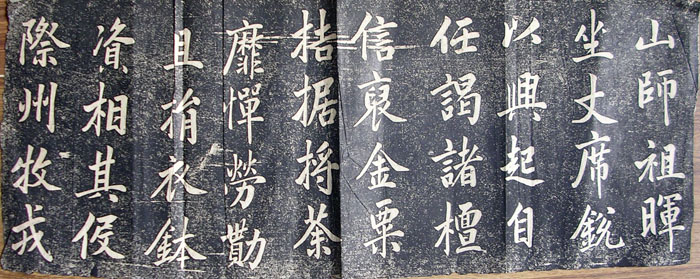 山師祖暉
坐丈席銳
以興起自
任謁諸檀
信裒金粟
拮据捋荼
靡憚勞勩
且捐衣鉢
資相其伇
際州牧戎